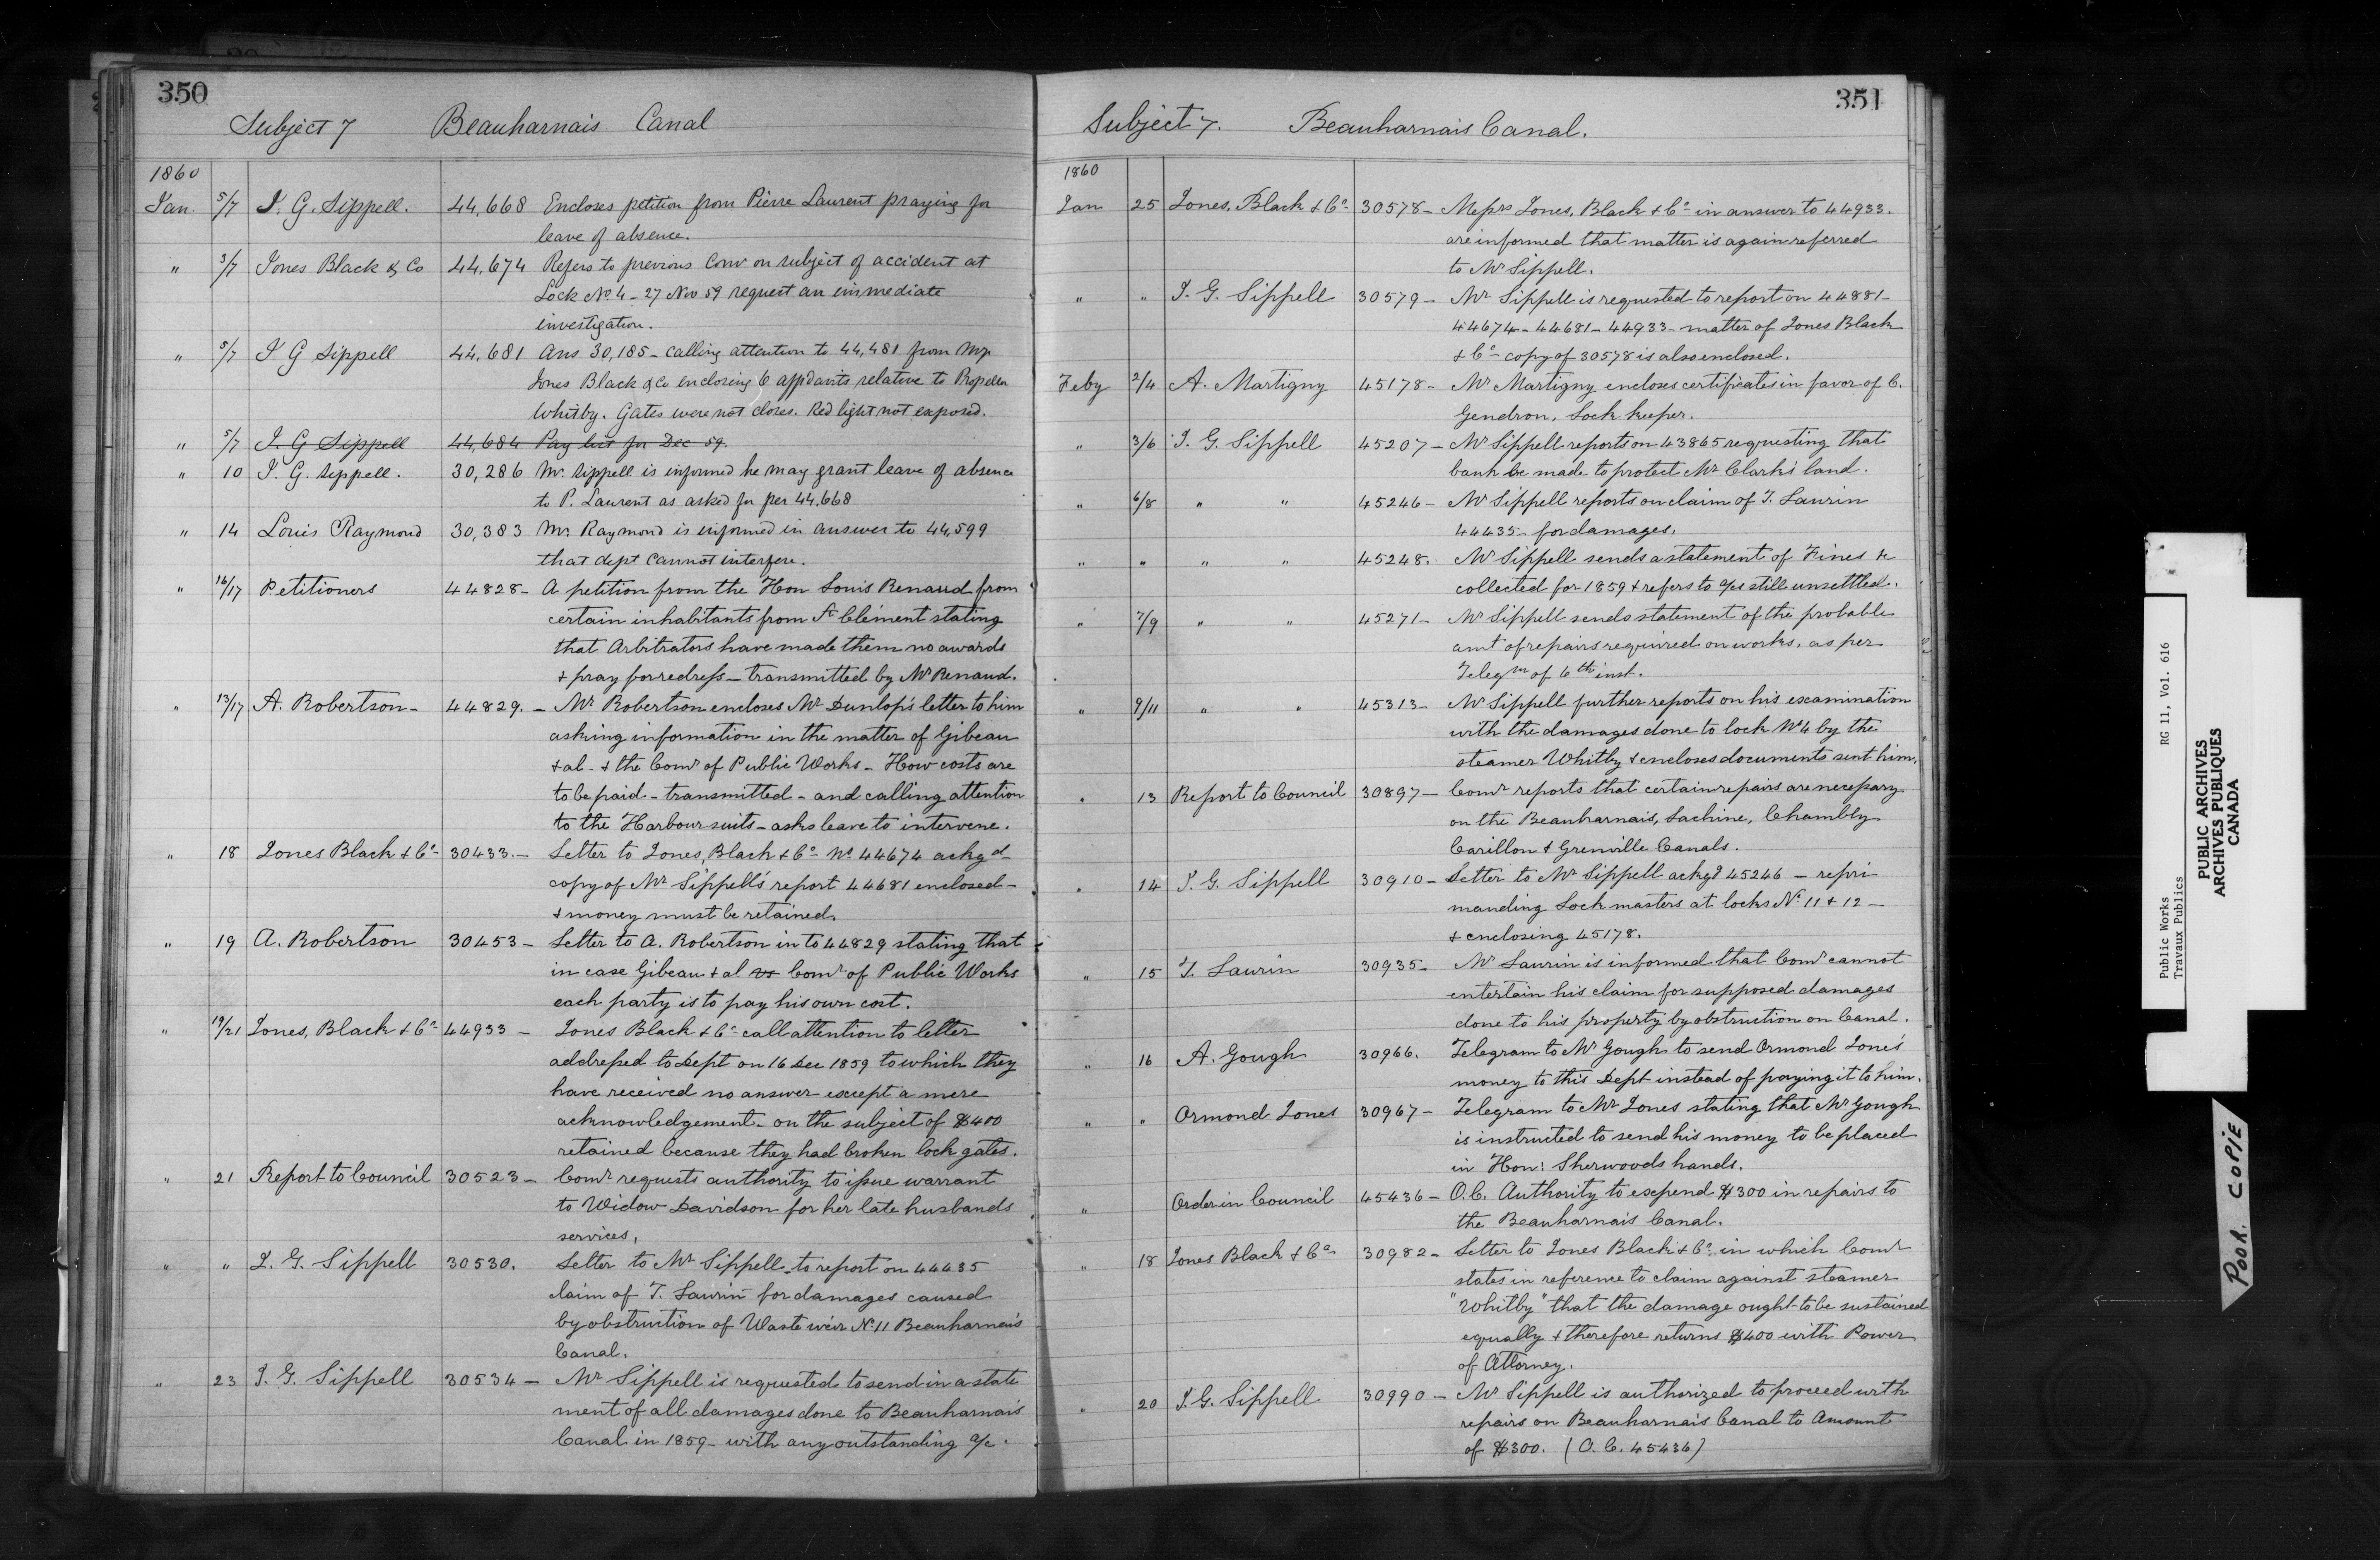 350
Subject 7 Beauharnais Canal
1860
Jan. 5/7 J. G. Sippell. 44,668 Encloses petition from Pierre Laurent praying for
leave of absence.
" 3/7 Jones Black & Co 44,674 Refers to previous Corr on subject of accident at
Lock No 4 - 27 Nov 59 request an immediate
investigation.
" 5/7 J G Sippell 44,681 Ans 30,185 - calling attention to 44,481 from Mssrs
Jones Black & Co enclosing 6 affidavits relative to Propeller
Whitby. Gates were not closes. Red light not exposed.
" 5/7 J. G Sippell 44,684 Pay list for Dec 59.
" 10 J. G. Sippell. 30,286 Mr. Sippell is informed he may grant leave of absence
to P. Laurent as asked for per 44,668
" 14 Louis Raymond 30,383 Mr. Raymond is informed in answer to 44,599
that dept cannot interfere.
" 16/17 Petitioners 44828- A petition from the Hon Louis Renaud from
certain inhabitants from St Clément stating
that Arbitrators have made them no awards
+ pray for redress - transmitted by Mr Renaud.
" 13/17 A. Robertson - 44829. - Mr Robertson encloses Mr Dunlop's letter to him
asking information in the matter of Gibeau
+ al - + the Comr of Public Works - How costs are
to be paid - transmitted - and calling attention
to the Harbour suits - asks leave to intervene.
" 18 Jones Black + Co- 30433. - Letter to Jones, Black + Co- No 44674 ackgd
copy of Mr Sippell's report 44681 enclosed -
+ money must be retained.
" 19 A. Robertson 30453 - Letter to A. Robertson in to 44829 stating that
in case Gibeau + al vs Comr of Public Works
each party is to pay his own cost.
" 19/21 Jones, Black + Co- 44933 - Jones Black + Co- call attention to letter
addressed to Dept on 16 Dec 1859 to which they
have received no answer except a mere
acknowledgement - on the subject of $400
retained because they had broken lock gates.
" 21 Report to Council 30523 - Comr requests authority to issue warrant
to Widow Davidson for her late husbands
services,
" " J. G. Sippell 30530. Letter to Mr Sippell - to report on 44435
claim of T. Laurin for damages caused
by obstruction of Waste weir No 11 Beauharnais
Canal.
" 23 J. G. Sippell 30534 - Mr Sippell is requested to send in a state
ment of all damages done to Beauharnais
Canal in 1859 - with any outstanding a/c.
351
Subject 7. Beauharnais Canal.
1860
Jan 25 Jones, Black + Co- 30578 - Messrs Jones, Black + Co- in answer to 44933.
are informed that matter is again referred
to Mr Sippell.
" " J. G. Sippell 30579 - Mr Sippell is requested to report on 44881 -
44674 - 44681 - 44933 - matter of Jones Black
+ Co- copy of 30578 is also enclosed.
Feby 2/4 A. Martigny 45178 - Mr Martigny encloses certificates in favor of C.
Gendron, Lock keeper.
" 3/6 J. G. Sippell 45207 - Mr Sippell reports on 43865 requesting that
bank be made to protect Mr Clark's land.
" 6/8 " " 45246 - Mr Sippell reports on claim of T. Laurin
44435 - for damages.
" " " " 45248. Mr Sippell sends a statement of Fines &c
collected for 1859 + refers to a/cs still unsettled.
" 7/9 " " 45271 - Mr Sippell sends statement of the probable
amt of repairs required on works, as per
Telegm of 6th inst.
" 9/11 " " 45313 - Mr Sippell further reports on his examination
with the damages done to lock No 4 by the
steamer Whitby + encloses documents sent him.
" 13 Report to Council 30897 - Comr reports that certain repairs are necessary
on the Beauharnais, Lachine, Chambly
Carillon + Grenville Canals.
" 14 J. G. Sippell 30910 - Letter to Mr Sippell ackgd 45246 - repri
manding Lock masters at locks No 11 + 12 -
+ enclosing 45178.
" 15 T. Laurin 30935 - Mr Laurin is informed that Comr cannot
entertain his claim for supposed damages
done to his property by obstruction on Canal.
" 16 A. Gough 30966. Telegram to Mr Gough to send Ormond Jones'
money to this Dept instead of paying it to him.
" " Ormond Jones 30967 - Telegram to Mr Jones stating that Mr Gough
is instructed to send his money to be placed
in Hon: Sherwoods hands.
" Order in Council 45436 - O.C. Authority to expend $300 in repairs to
the Beauharnais Canal.
" 18 Jones Black + Co- 30982 - Letter to Jones Black + Co: in which Comr
states in reference to claim against steamer
"Whitby" that the damage ought to be sustained
equally + therefore returns $400 with Power
of Attorney.
" 20 J. G. Sippell 30990 - Mr Sippell is authorized to proceed with
repairs on Beauharnais Canal to Amount
of $300. (O.C. 45436)
Public Works RG 11, Vol. 616
Travaux Publics
PUBLIC ARCHIVES
ARCHIVES PUBLIQUES
CANADA
POOR COPIE